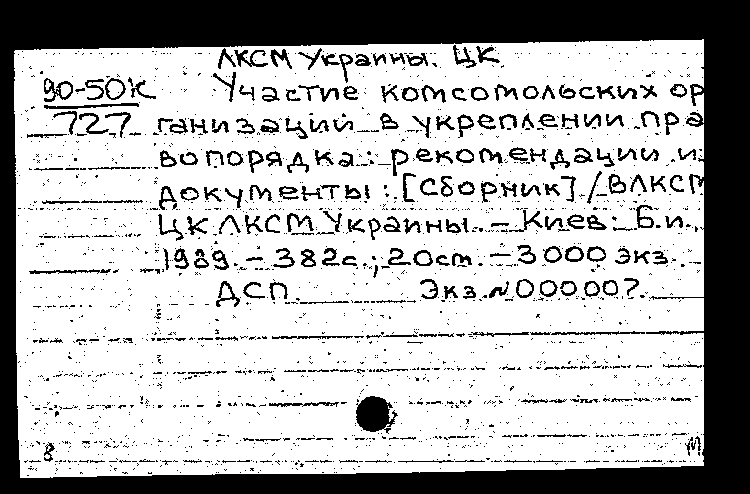 ЛКСМ Украины. ЦК
90-50К Участие комсомольских ор
727 ганизаций в укреплении пра
вопорядка: рекомендации и
документы: [Сборник] / ВЛКСМ
ЦК ЛКСМ Украины. – Киев: Б.и.,
1989. – 382с.; 20см. – 3000 экз.
ДСП. Экз.№000007.
8 М